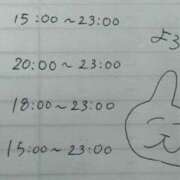 15:00～23:00
よろ
20:00～23:00
18:00～23:00
15:00～23:00